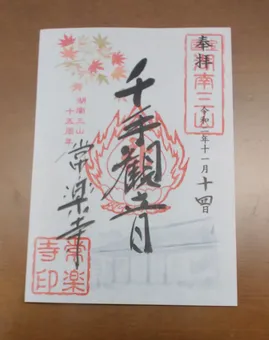 奉拝
湖南三山
令和二年十一月十四日
千手観音
湖南三山
十五周年
常楽寺
常楽
寺印